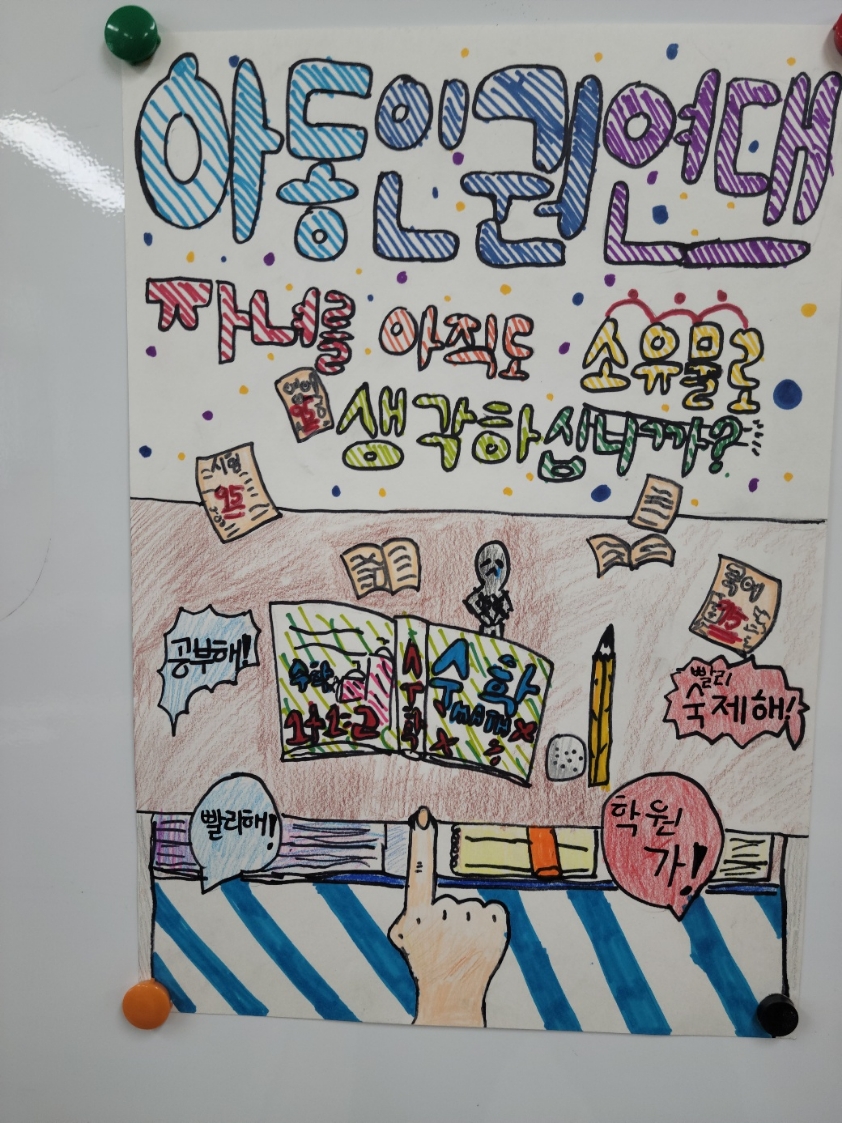 아동인권연대
자녀를 아직도 소유물로
생각하십니까?
영어
시험
95
국어
공부해!
수학
1+1=2
수학
수학
MATH
빨리
숙제해!
빨리해!
학원
가!